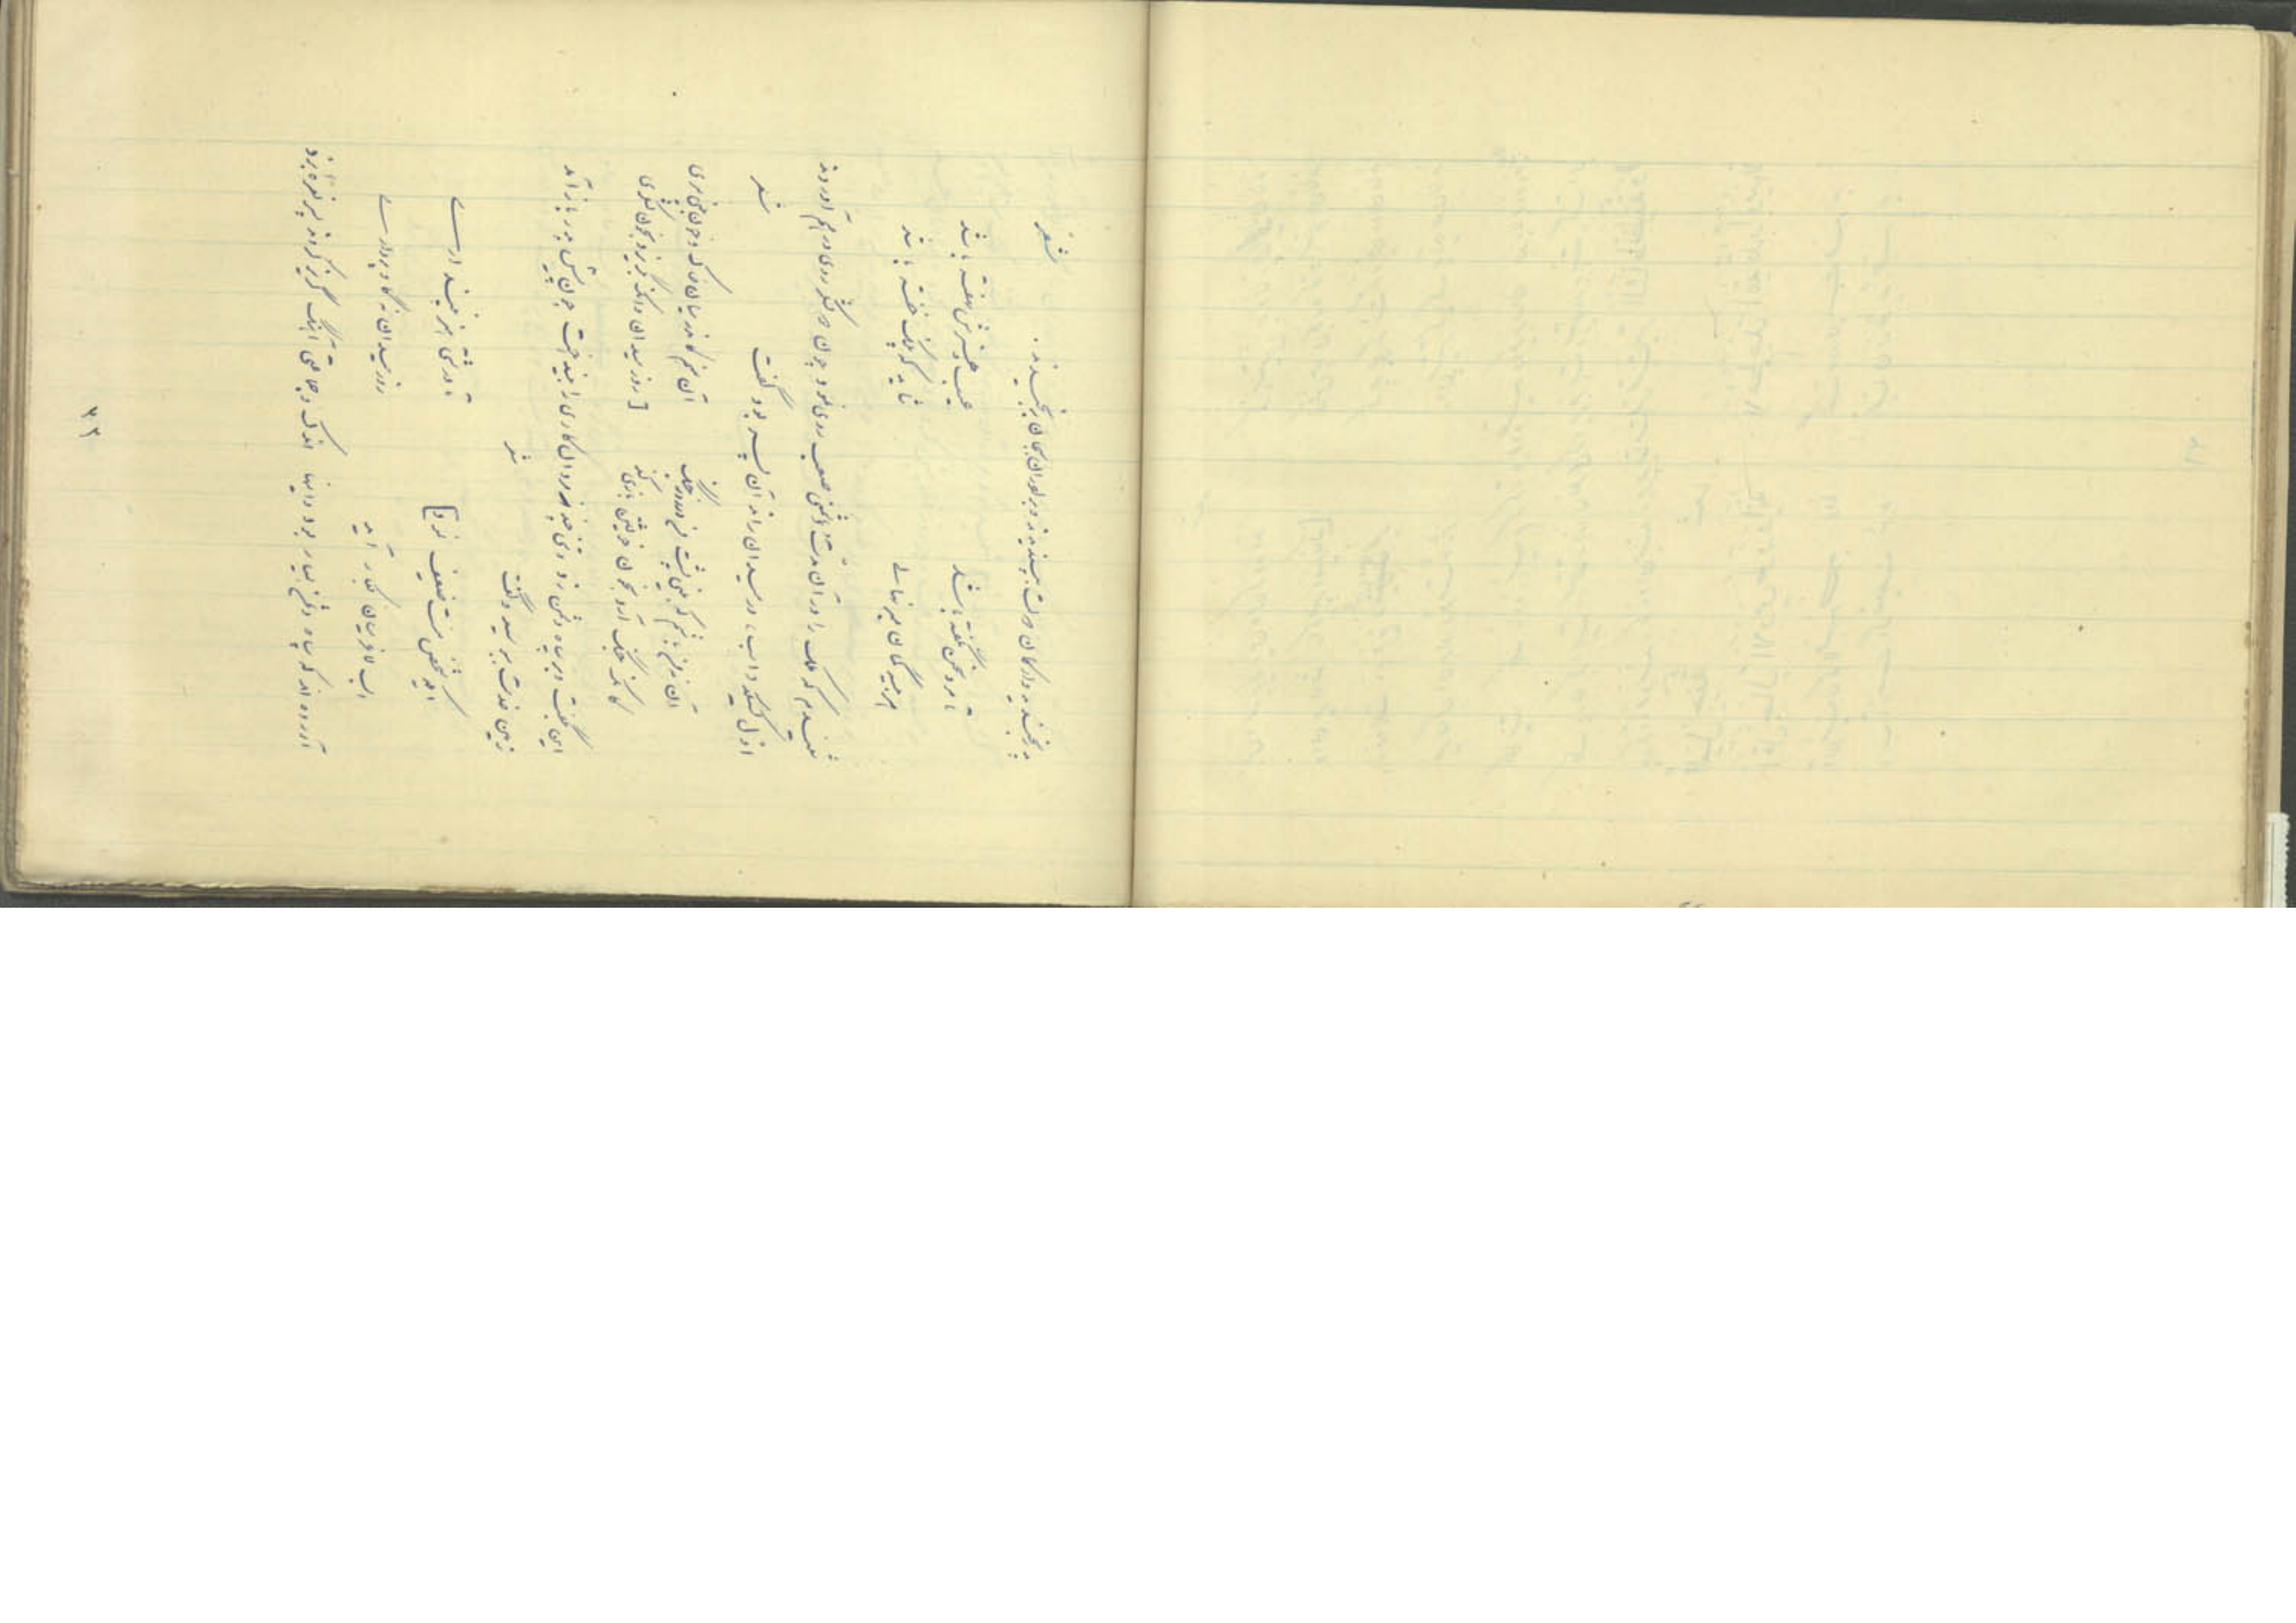 پدر بخندید و ارکان دولت بپسندیدند و برادران بجان برنجیدند. شعر
تا مرد سخن نگفته باشد عیب و هنرش نهفته باشد
هر بیشه گمان مبر نهالی شاید که پلنگ خفته باشد
شنیدم که ملک را در آن مدت دشمنی صعب روی نمود چون دو لشکر روی در هم آوردند
اول کسیکه اسب در میدان راند آن پسر بود گفت شعر
آن نه من باشم که روز جنگ بینی پشت من آن منم کاندر میان خاک و خون بینی سری
کانکه جنگ آرد بخون خویش بازی میکند روز میدان وانکه بگریزد بخون لشکری
این بگفت و بر سپاه دشمن زد و تنی چند مردان کاری را بینداخت چون پیش پدر باز آمد
زمین خدمت ببوسید و گفت شعر
ایکه شخص منت ضعیف نمود تا درشتی هنر نپنداری
اسب لاغر میان بکار آید روز میدان نه گاو پرواری
آورده اند که سپاه دشمن بسیار بود و اینها اندک و جماعتی آهنگ گریز کردند پسر نعره بزد
۳۳